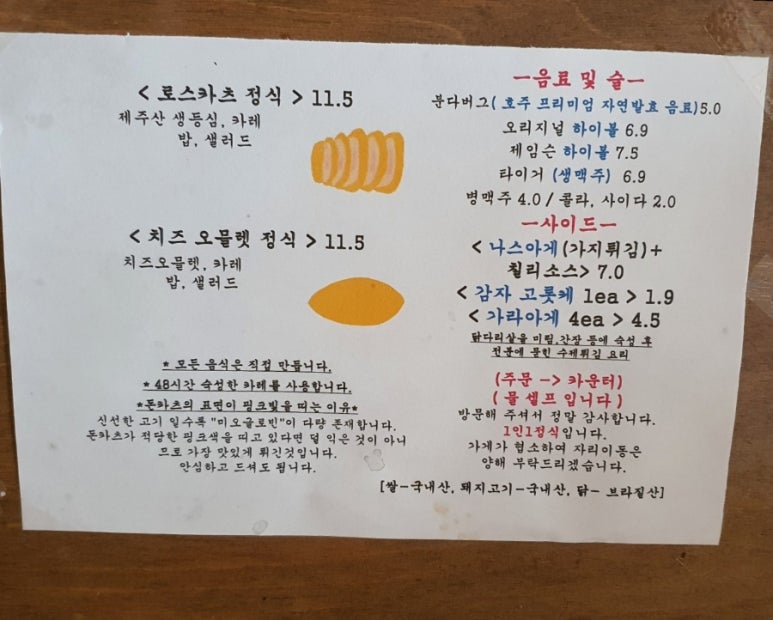 < 로스카츠 정식 > 11.5
제주산 생등심, 카레
밥, 샐러드
< 치즈 오믈렛 정식 > 11.5
치즈오믈렛, 카레
밥, 샐러드
* 모든 음식은 직접 만듭니다.
* 48시간 숙성한 카레를 사용합니다.
*돈카츠의 표면이 핑크빛을 띠는 이유*
신선한 고기 일수록 "미오글로빈"이 다량 존재합니다.
돈카츠가 적당한 핑크색을 띠고 있다면 덜 익은 것이 아니
므로 가장 맛있게 튀긴것입니다.
안심하고 드셔도 됩니다.
ー음료 및 술ー
분다버그( 호주 프리미엄 자연발효 음료)5.0
오리지널 하이볼 6.9
제임슨 하이볼 7.5
타이거 (생맥주) 6.9
병맥주 4.0 / 콜라, 사이다 2.0
ー사이드ー
< 나스아게(가지튀김)+
칠리소스> 7.0
< 감자 고롯케 1ea > 1.9
< 가라아게 4ea > 4.5
닭다리살을 미림,간장 등에 숙성 후
전분에 묻힌 수제튀김 요리
(주문 -> 카운터)
( 물 셀프 입니다 )
방문해 주셔서 정말 감사합니다.
1인1정식입니다.
가게가 협소하여 자리이동은
양해 부탁드리겠습니다.
[쌀-국내산, 돼지고기-국내산, 닭- 브라질산]